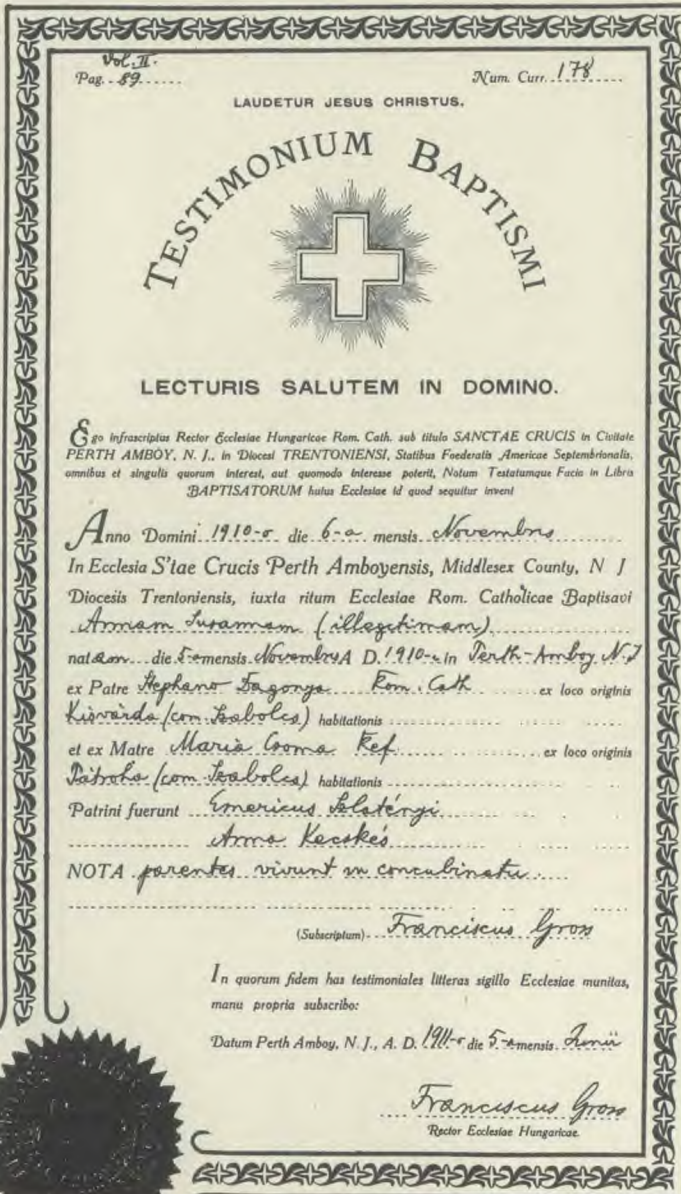 Vol. II.
Pag. 89
Num. Curr. 178
LAUDETUR JESUS CHRISTUS.
TESTIMONIUM BAPTISMI
LECTURIS SALUTEM IN DOMINO.
Ego infrascriptus Rector Ecclesiae Hungaricae Rom. Cath. sub titulo SANCTAE CRUCIS in Civitate
PERTH AMBOY, N. J., in Diocesi TRENTONIENSI, Statibus Foederatis Americae Septembrionalis,
omnibus et singulis quorum interest, aut quomodo interesse poterit, Notum Testatumque Facio in Libris
BAPTISATORUM huius Ecclesiae id quod sequitur inveni
Anno Domini 1910-o die 6-a mensis Novembris
In Ecclesia S'tae Crucis Perth Amboyensis, Middlesex County, N J
Diocesis Trentoniensis, iuxta ritum Ecclesiae Rom. Catholicae Baptisavi
Annam Susannam (illegitimam)
natam die 5-a mensis Novembris A D. 1910-o in Perth-Amboy N.J
ex Patre Stephano Dagonya Rom. Cath ex loco originis
Kisvárda (com. Szabolcs) habitationis
et ex Matre Maria Csoma Ref. ex loco originis
Pátroha (com. Szabolcs) habitationis
Patrini fuerunt Emericus Szlatényi
Anna Kecskés
NOTA parentes vivunt in concubinatu
(Subscriptum) Franciscus Gross
In quorum fidem has testimoniales litteras sigillo Ecclesiae munitas,
manu propria subscribo:
Datum Perth Amboy, N. J., A. D. 1911-o die 5-a mensis Junii
Franciscus Gross
Rector Ecclesiae Hungaricae.